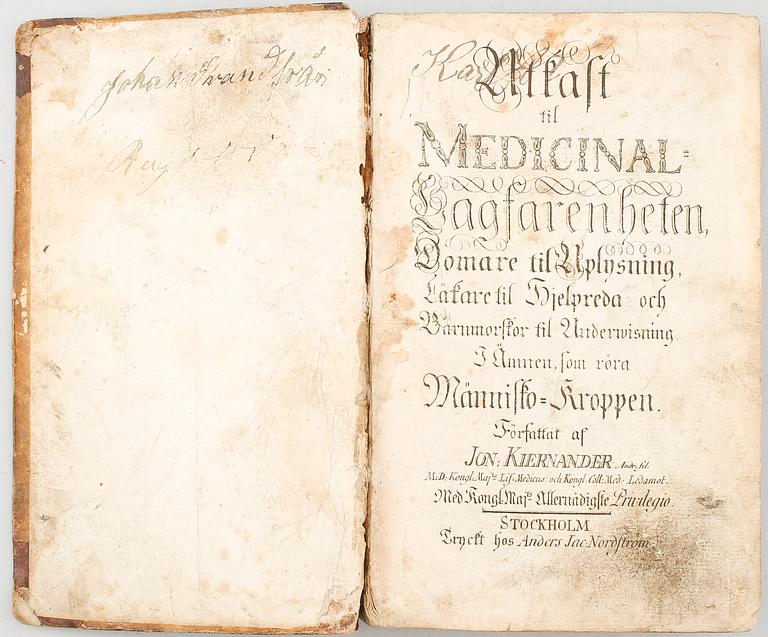 Johan
Utkast
til
MEDICINAL=
Lagfarenheten,
Domare til Uplysning,
Läkare til Hjelpreda och
Barnmorskor til Underwisning.
I Ämnen, som röra
Människo=Kroppen.
Författat af
JON: KIERNANDER Andr. fil.
M.D: Kongl. Majts Lif-Medicus och Kongl. Coll: Med: Ledamot.
Med Kongl. Majts Allernådigste Privilegio.
STOCKHOLM
Tryckt hos Anders Jac: Nordström